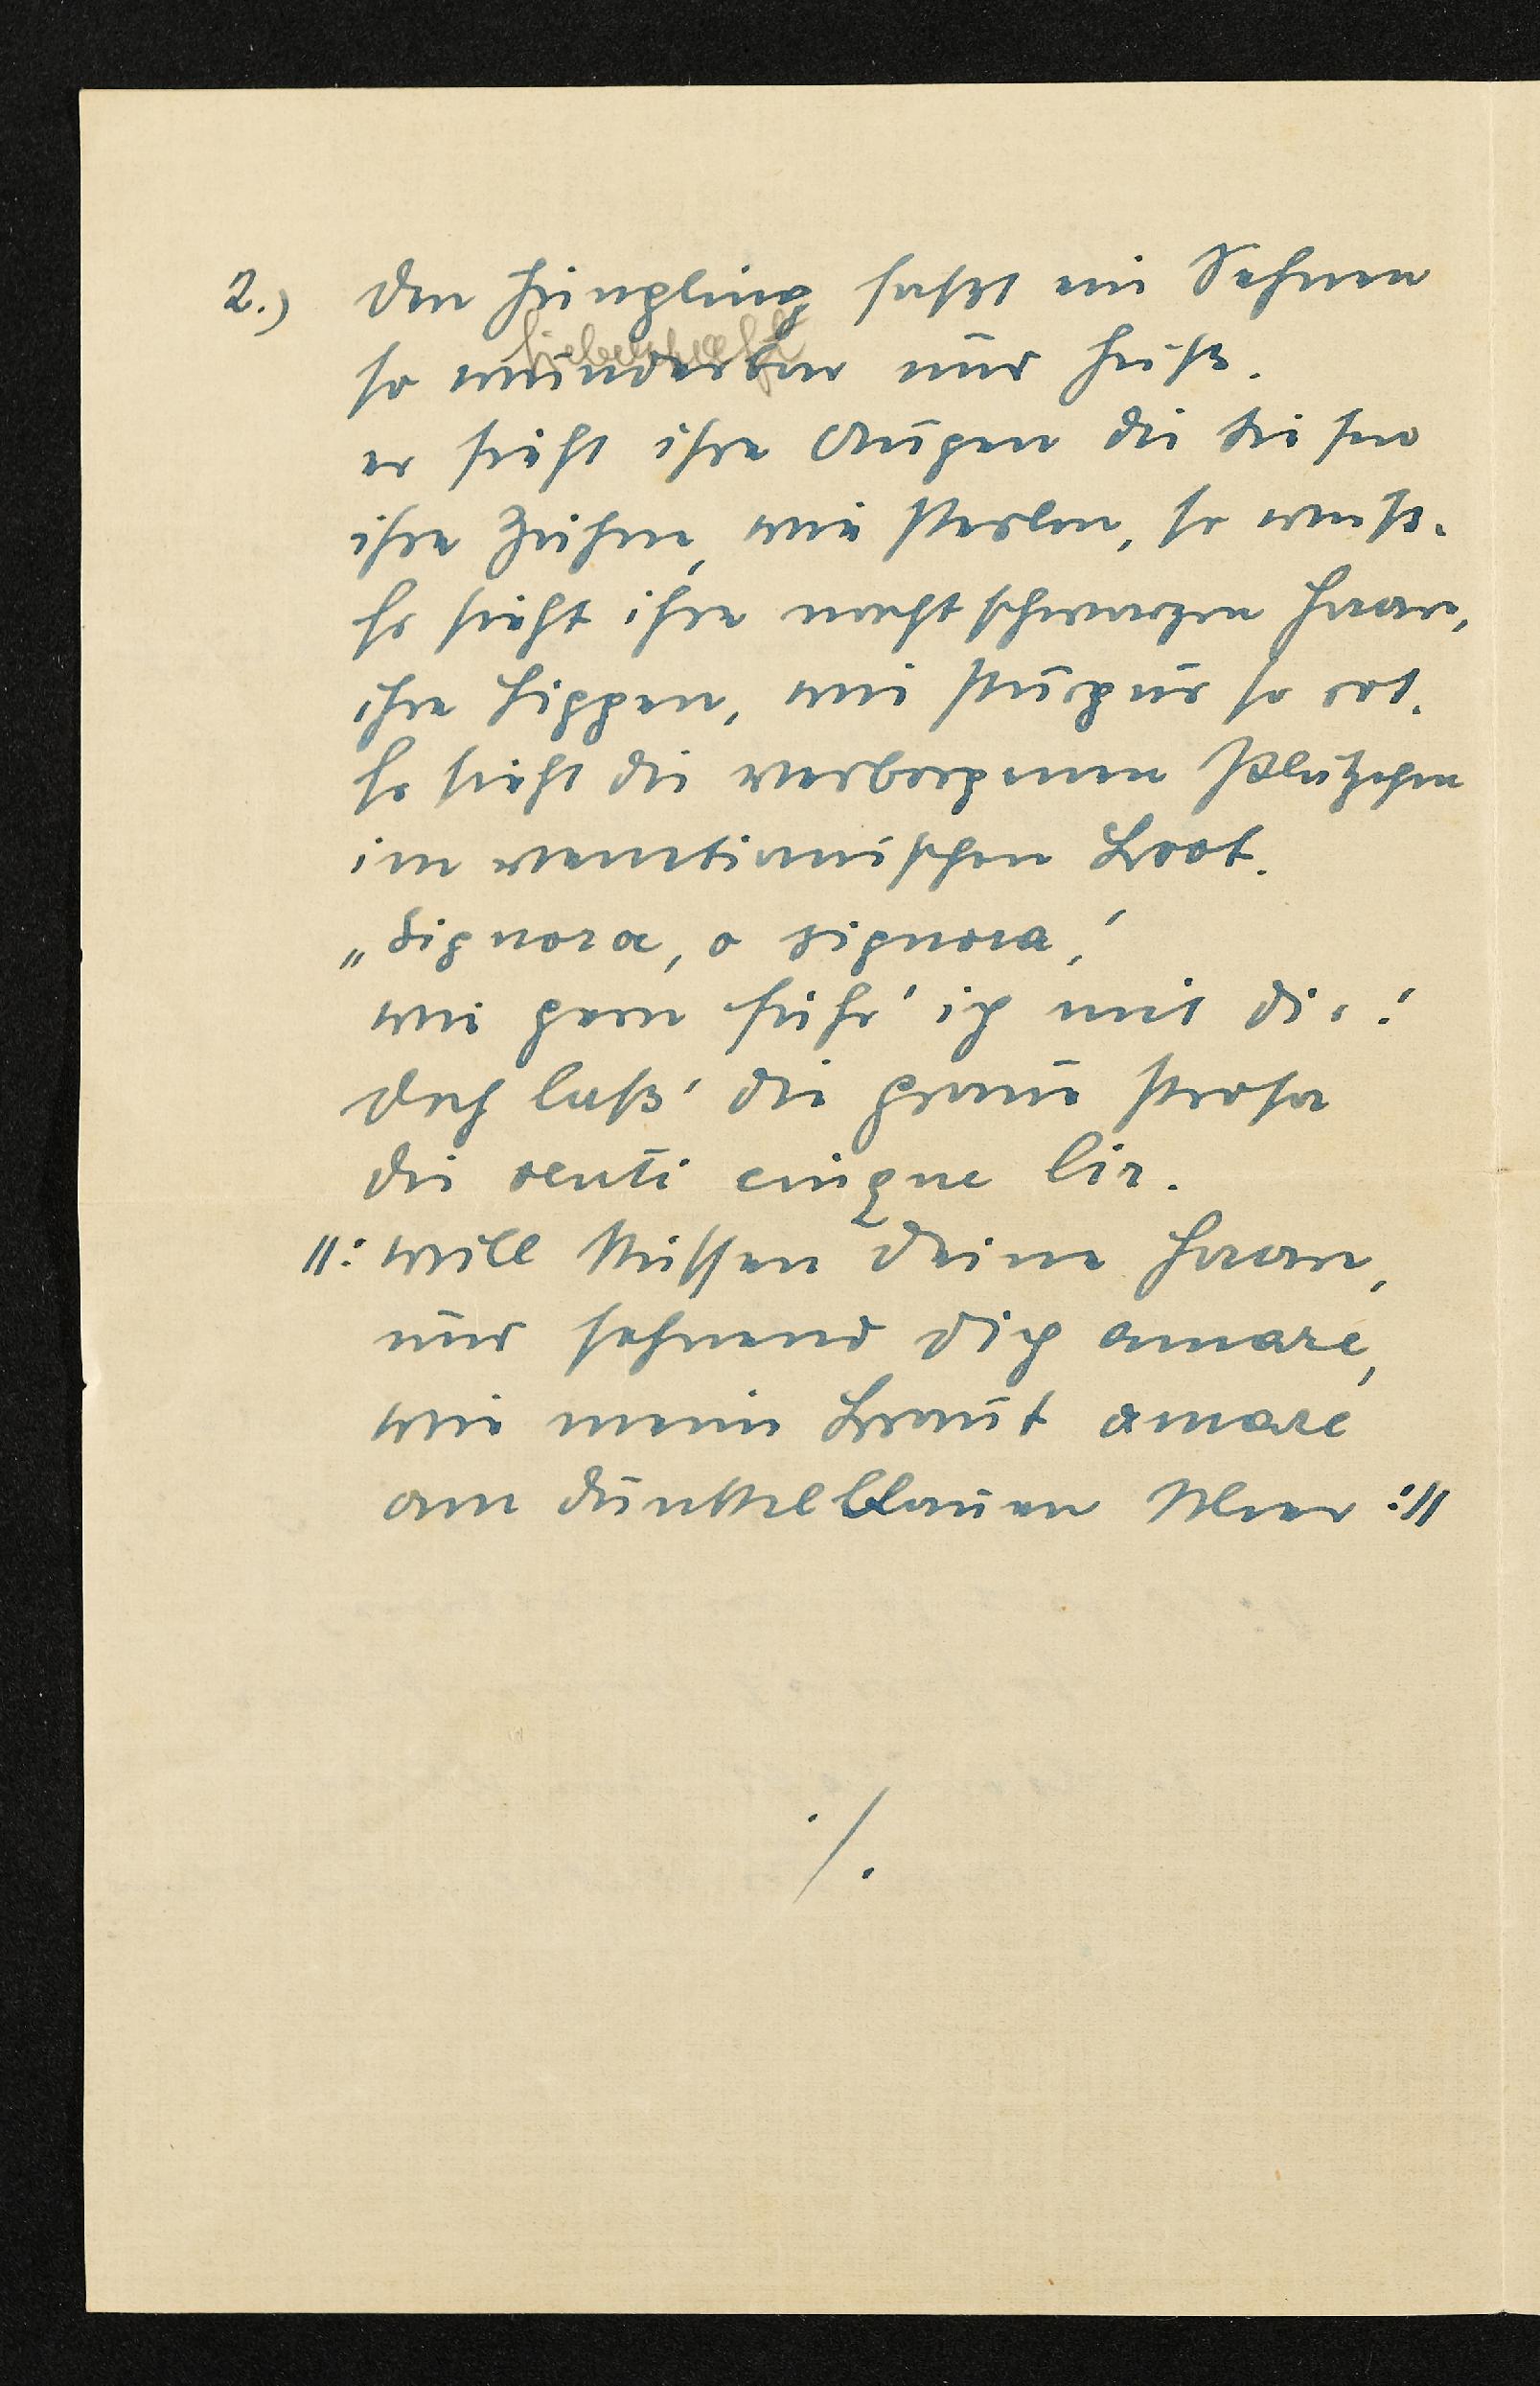 2.) den Jüngling faßt ein Sehnen
fieberhaft
so wunderbar und heiß.
er sieht ihre Augen die tiefen
ihre Zähne, wie Perlen, so weiß.
Er sieht ihre nachtschwarzen Haare,
ihre Lippen, wie Purpur so rot.
Er sieht die verborgenen Plätzchen
im venetianischen Boot.
„Signora, o signora,!
wie gern führ' ich mit dir!
doch laß' die graue Prosa
die venti cinque lir.
||: will küssen deine Haare,
und sehnend dich amare,
wie meine Braut amare
am dunkelblauen Meer :||
./.